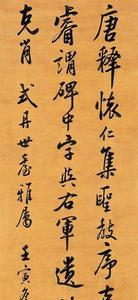 唐釋懷仁集聖教序
睿謂碑中字與右軍遺
克肖 式丹世臺雅屬 壬寅